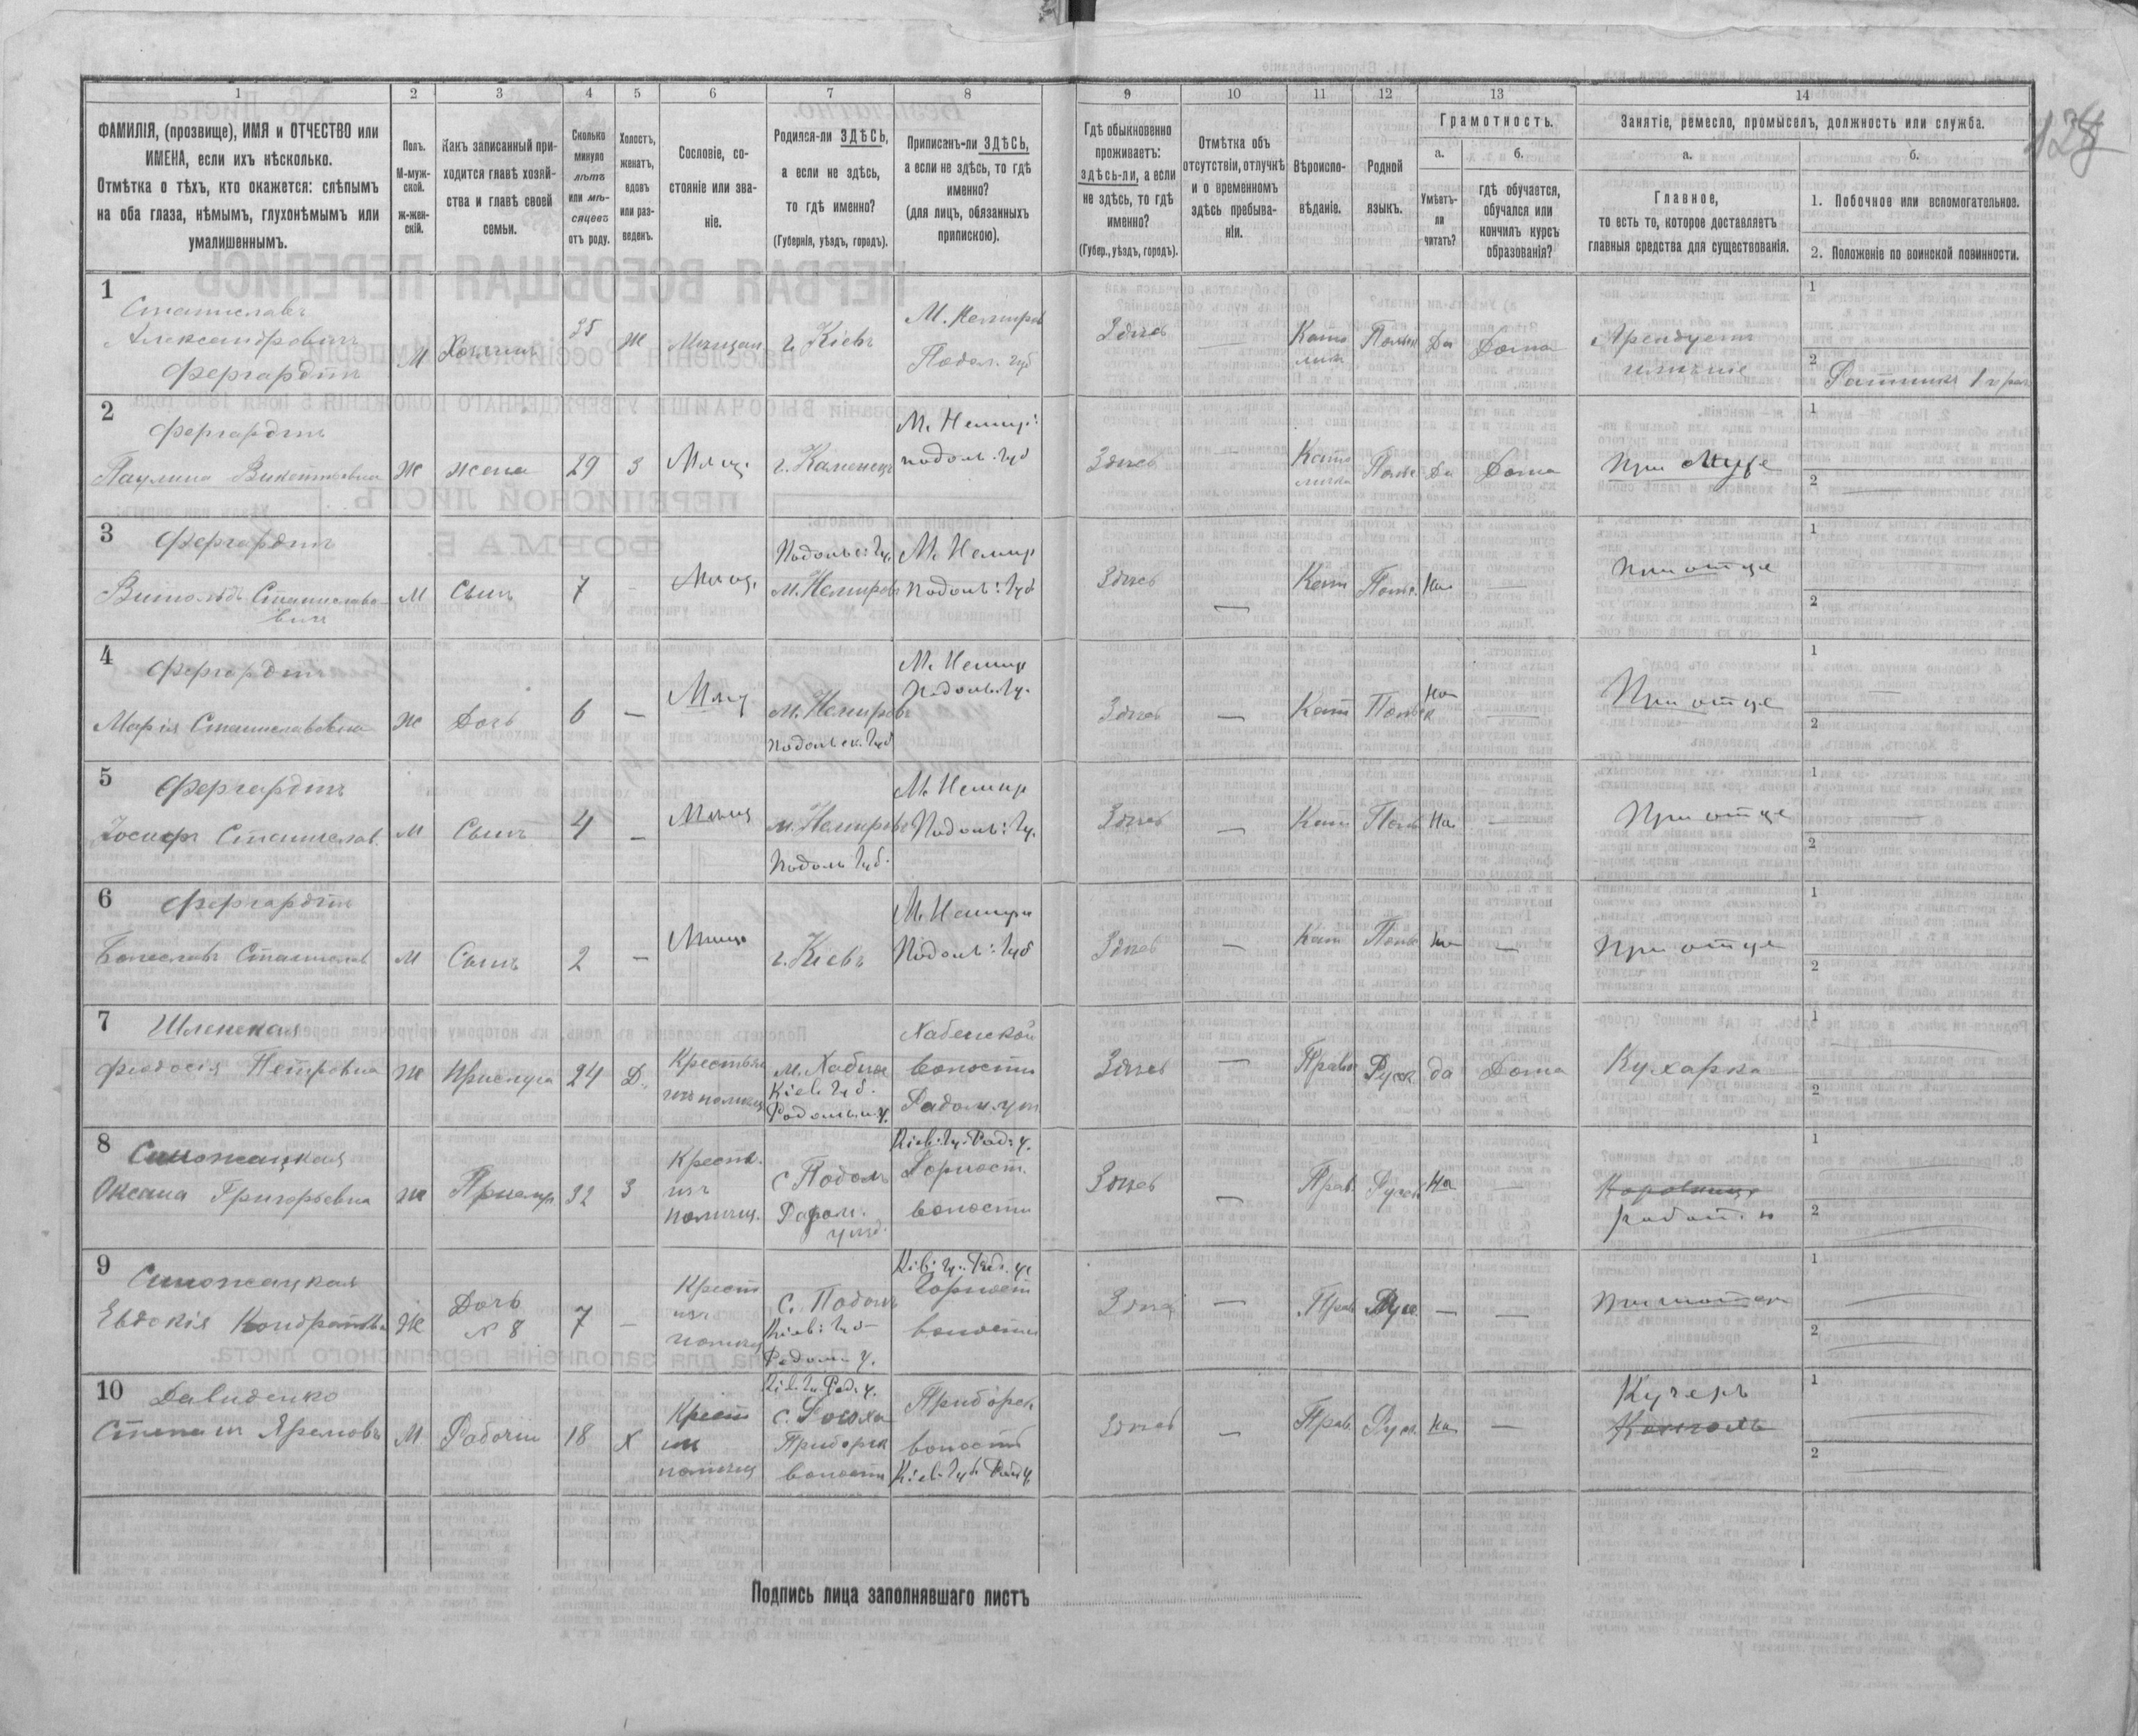 128
1 2 3 4 5 6 7 8 9 10 11 12 13 14
ФАМИЛІЯ, (прозвище), ИМЯ и ОТЧЕСТВО или
ИМЕНА, если ихъ нѣсколько.
Отмѣтка о тѣхъ, кто окажется: слѣпымъ
на оба глаза, нѣмымъ, глухонѣмымъ или
умалишеннымъ.
Полъ.
М-муж-
ской.
ж-жен-
скій.
Какъ записанный при-
ходится главѣ хозяй-
ства и главѣ своей
семьи.
Сколько
минуло
лѣтъ
или мѣ-
сяцевъ
отъ роду.
Холостъ,
женатъ,
вдовъ
или раз-
веденъ.
Сословіе, со-
стояніе или зва-
ніе.
Родился-ли ЗДѢСЬ,
а если не здѣсь,
то гдѣ именно?
(Губернія, уѣздъ, городъ).
Приписанъ-ли ЗДѢСЬ,
а если не здѣсь, то гдѣ
именно?
(для лицъ, обязанныхъ
припискою).
Гдѣ обыкновенно
проживаетъ:
здѣсь-ли, а если
не здѣсь, то гдѣ
именно?
(Губер., уѣздъ, городъ).
Отмѣтка объ
отсутствіи, отлучкѣ
и о временномъ
здѣсь пребыва-
ніи.
Вѣроиспо-
вѣданіе.
Родной
языкъ.
Грамотность.
а.
Умѣетъ-
ли
читать?
б.
гдѣ обучается,
обучался или
кончилъ курсъ
образованія?
Занятіе, ремесло, промыселъ, должность или служба.
а.
Главное,
то есть то, которое доставляетъ
главныя средства для существованія.
б.
1. Побочное или вспомогательное.
2. Положеніе по воинской повинности.
1
Станиславъ
Александровичъ
Фергардтъ
М
Хозяинъ
35
Ж
Мѣщан
г. Кіевъ
М. Немиров
Подол. губ
Здѣсь
Като
ликъ
Польск
Да
Дома
Арендуетъ
имѣніе
1
2 Ратникъ 1 разр
2
Фергардтъ
Паулина Викентьевна
Ж
жена
29
З
Мѣщ.
г. Каменецъ
М. Немир:
подол. губ
Здѣсь
Като
личка
Поль
Да
Дома
При Мужѣ
1
2
3
Фергардтъ
Витольдъ Станиславо-
вичъ
М
Сынъ
7
Мѣщ.
Подольс: Гу.
М. Немировъ
М. Немир
Подоль: губ
Здѣсь
Кат
Польс.
Не
При отцѣ
1
2
4
Фергардтъ
Марія Станиславовна
Ж
Дочь
6
Мѣщ
М. Немировъ
Подольск. губ
М. Немир
Подоль. гу.
Здѣсь
Кат
Польск
Не
При отцѣ
1
2
5
Фергардтъ
Іосифъ Станислав.
М
Сынъ
4
Мѣщ
м. Немировъ
Подоль губ.
М. Немир
Подоль: гу.
Здѣсь
Кат
Поль
Не
При отцѣ
1
2
6
Фергардтъ
Болеславъ Станислав
М
Сынъ
2
Мѣщ
г. Кіевъ
М. Немир
Подоль: губ
Здѣсь
Кат
Поль
Не
При отцѣ
1
2
7
Феодосія Петровна
Ж
Прислуга
24
Д.
м. Хабное
Кіев. губ.
Радомыш. у.
Хабенской
волости
Радом. у
Здѣсь
Право
Русск
да
Дома
Кухарка
1
2
8
Оксана Григорьевна
Ж
Прислуг
32
З
Крест.
изъ
с Подол
Радом.
уѣзд.
Кіев: гу: Рад: у.
Горност.
волости
Здѣсь
Прав.
Русск
Не
работн.
1
2
9
Евдокія Кондратьевна
Ж
Дочь
№ 8
7
Крест
изъ
с. Подол
Кіев: губ
Радом. у.
Кіев: гу: Рад. у.
Горност
волости
Здѣс
Прав
Рус.
1
2
10
Давиденко
Степанъ Яремовъ
М
Рабочій
18
Х
Крест
изъ
Кіев. гу. Рад. у.
с. Росоха
Приборск
волости
Приборск
волости
Кіев. губ. Рад у.
Здѣсь
Прав.
Русск
Не
Кучеръ
1
2
Подпись лица заполнявшаго листъ